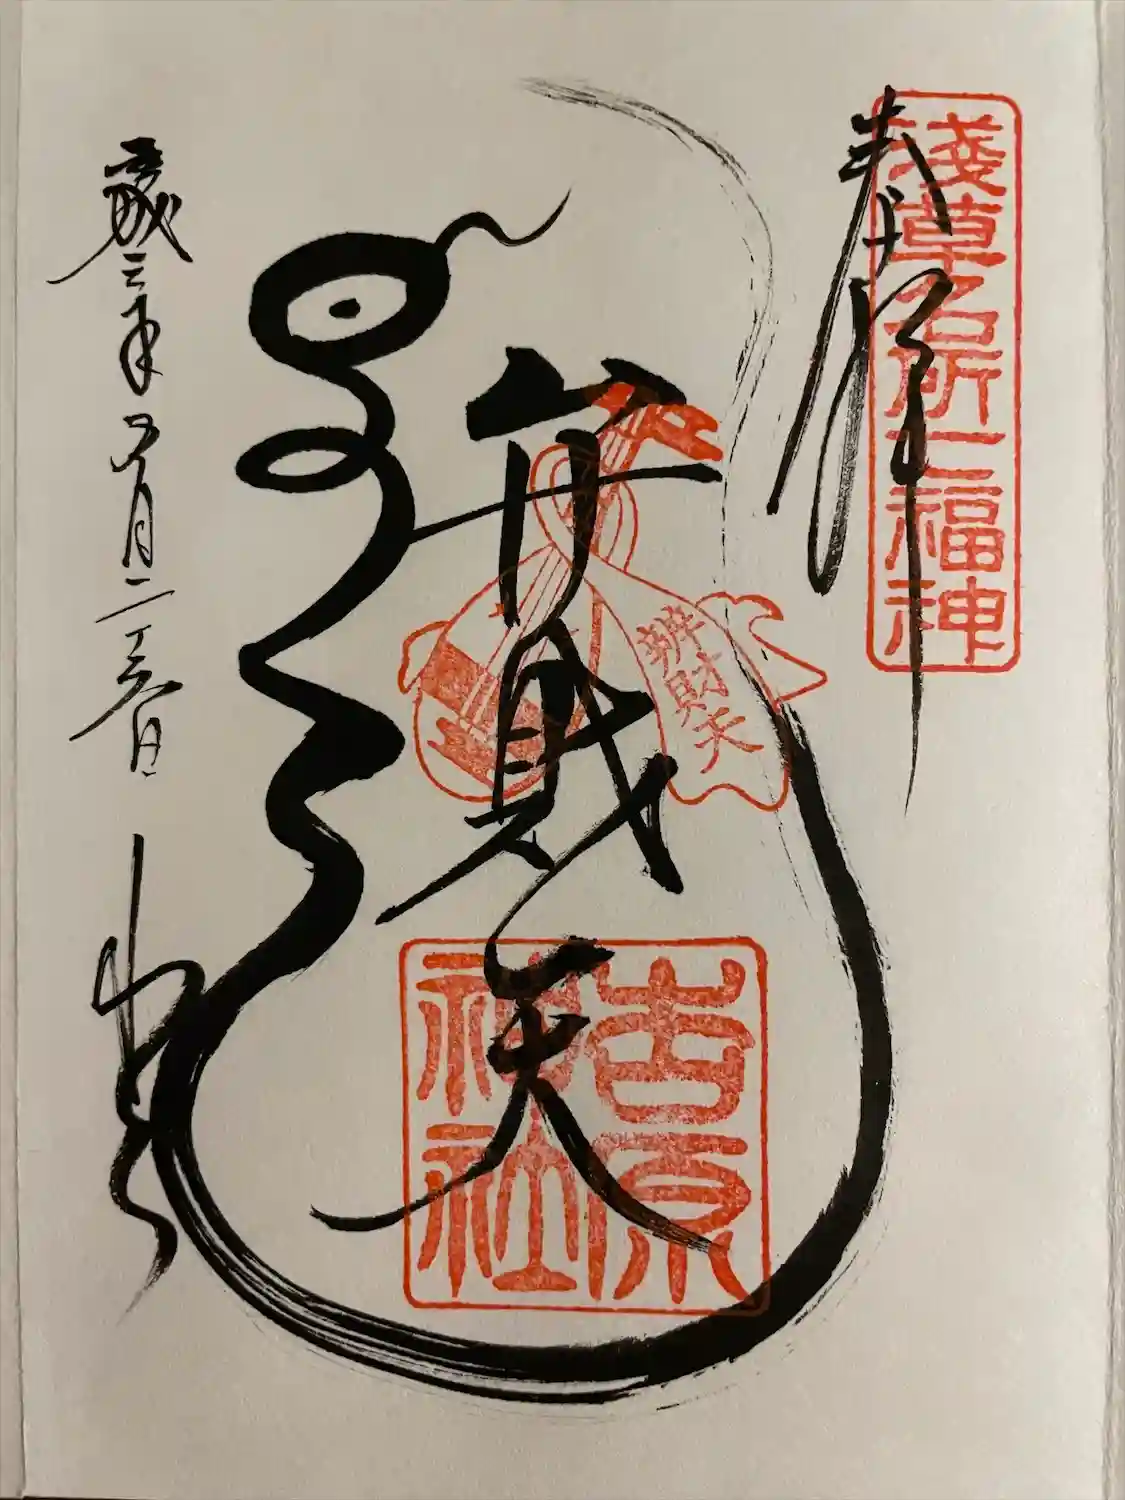 奉拝
淺草名所七福神
弁財天
辨財天
吉原
神社
歳三年五月二十六日